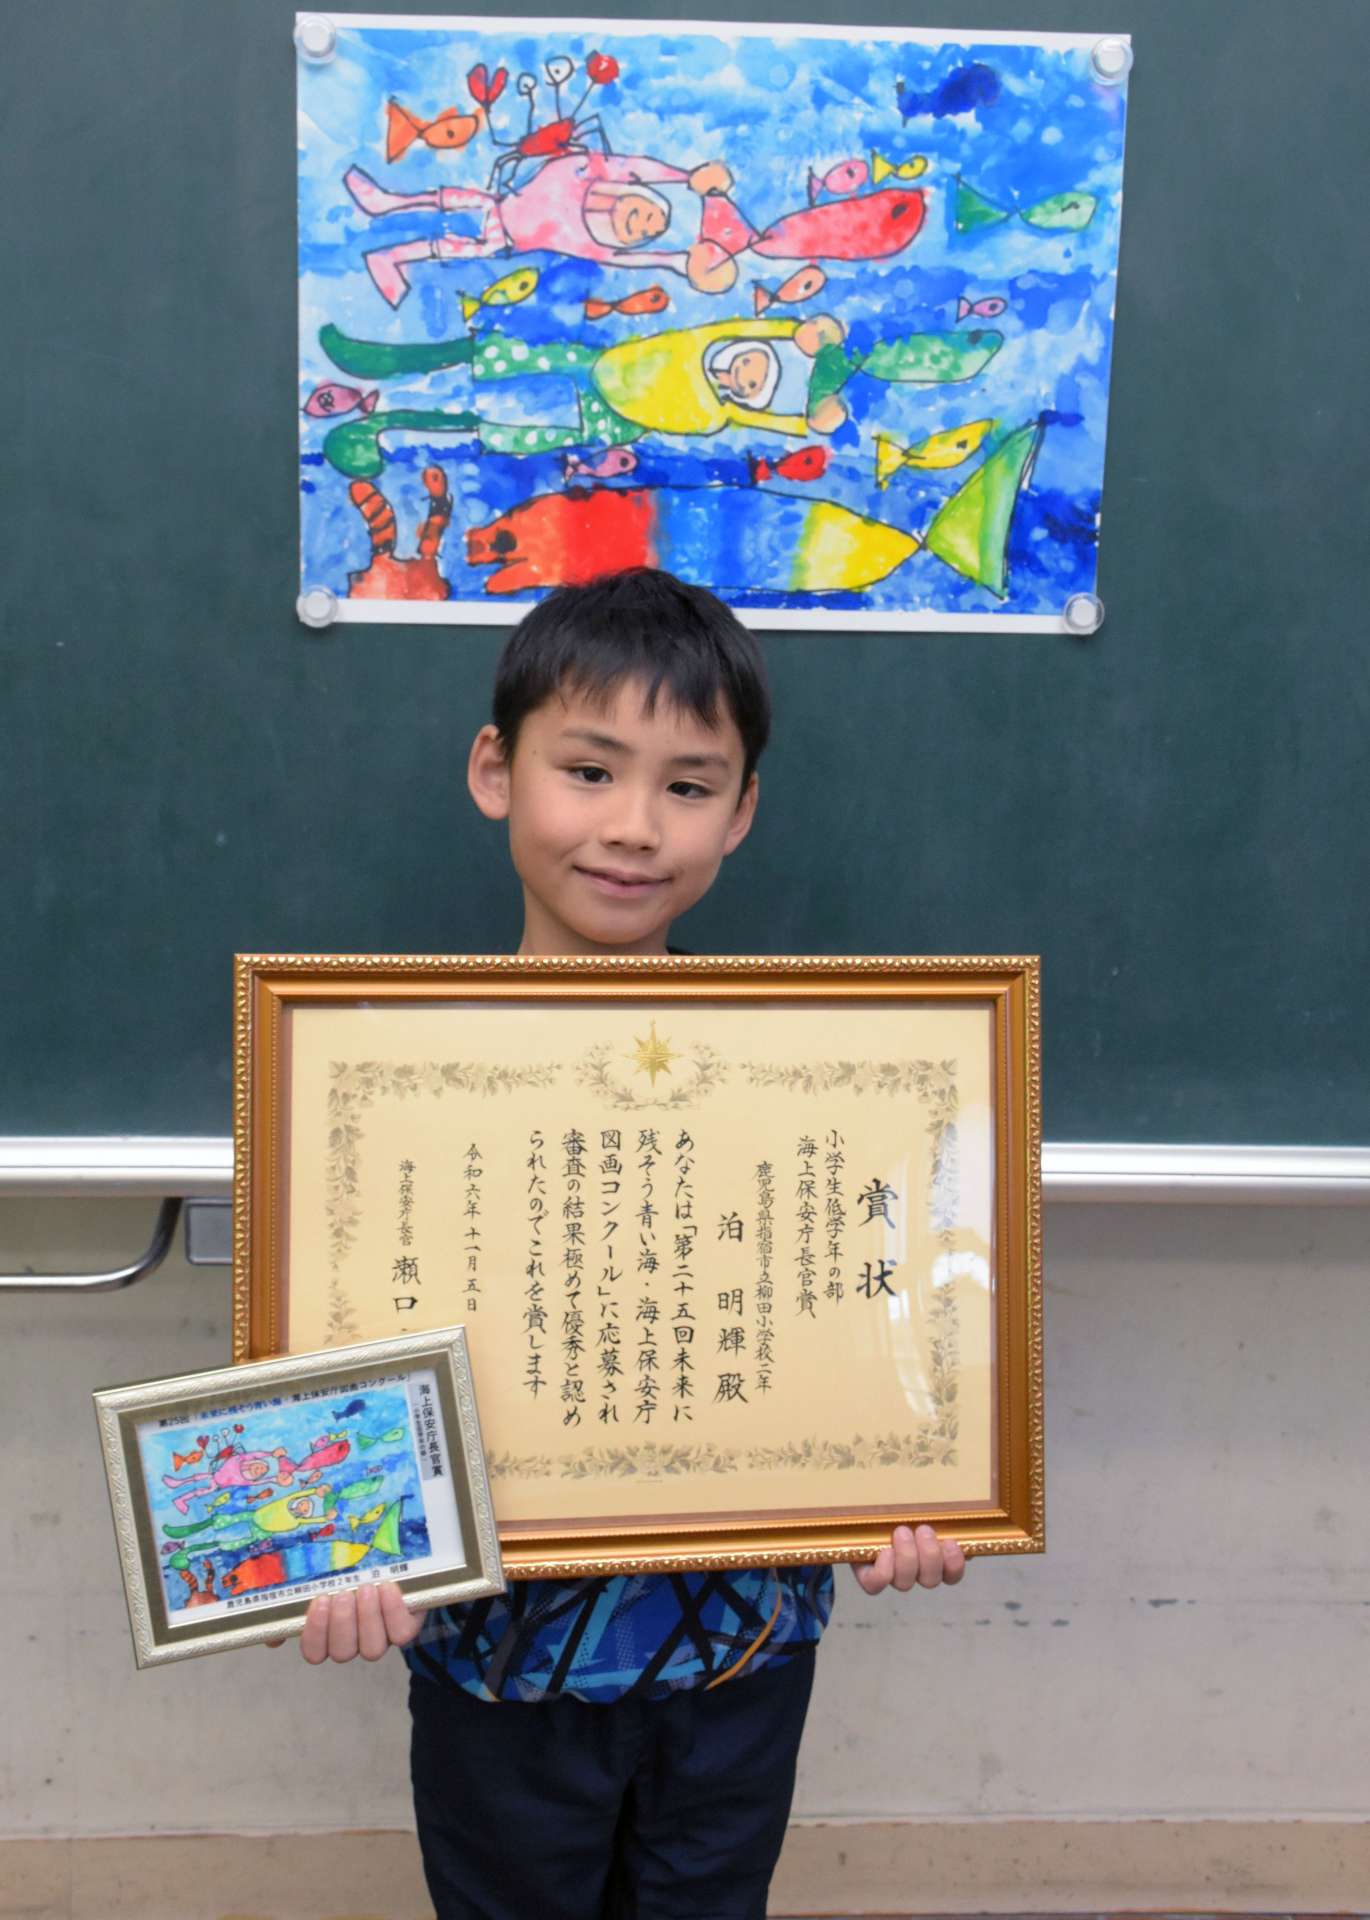 賞状
小学生低学年の部
海上保安庁長官賞
鹿児島県指宿市立柳田小学校二年
泊 明輝 殿
あなたは「第二十五回未来に
残そう青い海・海上保安庁
図画コンクール」に応募され
審査の結果極めて優秀と認め
られたのでこれを賞します
令和六年十一月五日
海上保安庁長官 瀬口
第25回 「未来に残そう青い海・海上保安庁図画コンクール」
海上保安庁長官賞
鹿児島県指宿市立柳田小学校2年生 泊 明輝